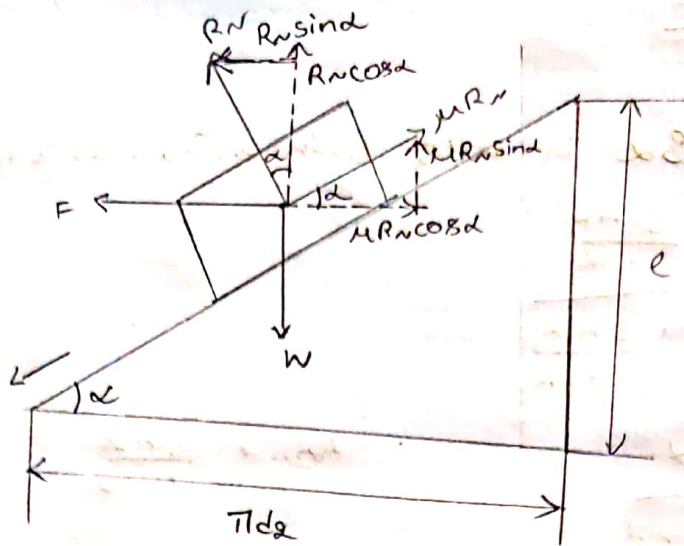 RN RNsinα
RNcosα
μRN
α
μRNsinα
F
α
μRNcosα
l
W
α
πd2